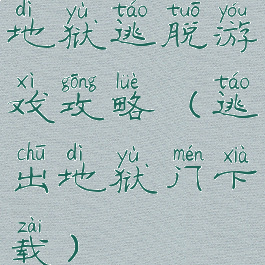 dì yù táo tuō yóu
地狱逃脱游
xì gōng lüè táo
戏攻略（逃
chū dì yù mén xià
出地狱门下
zài
载）